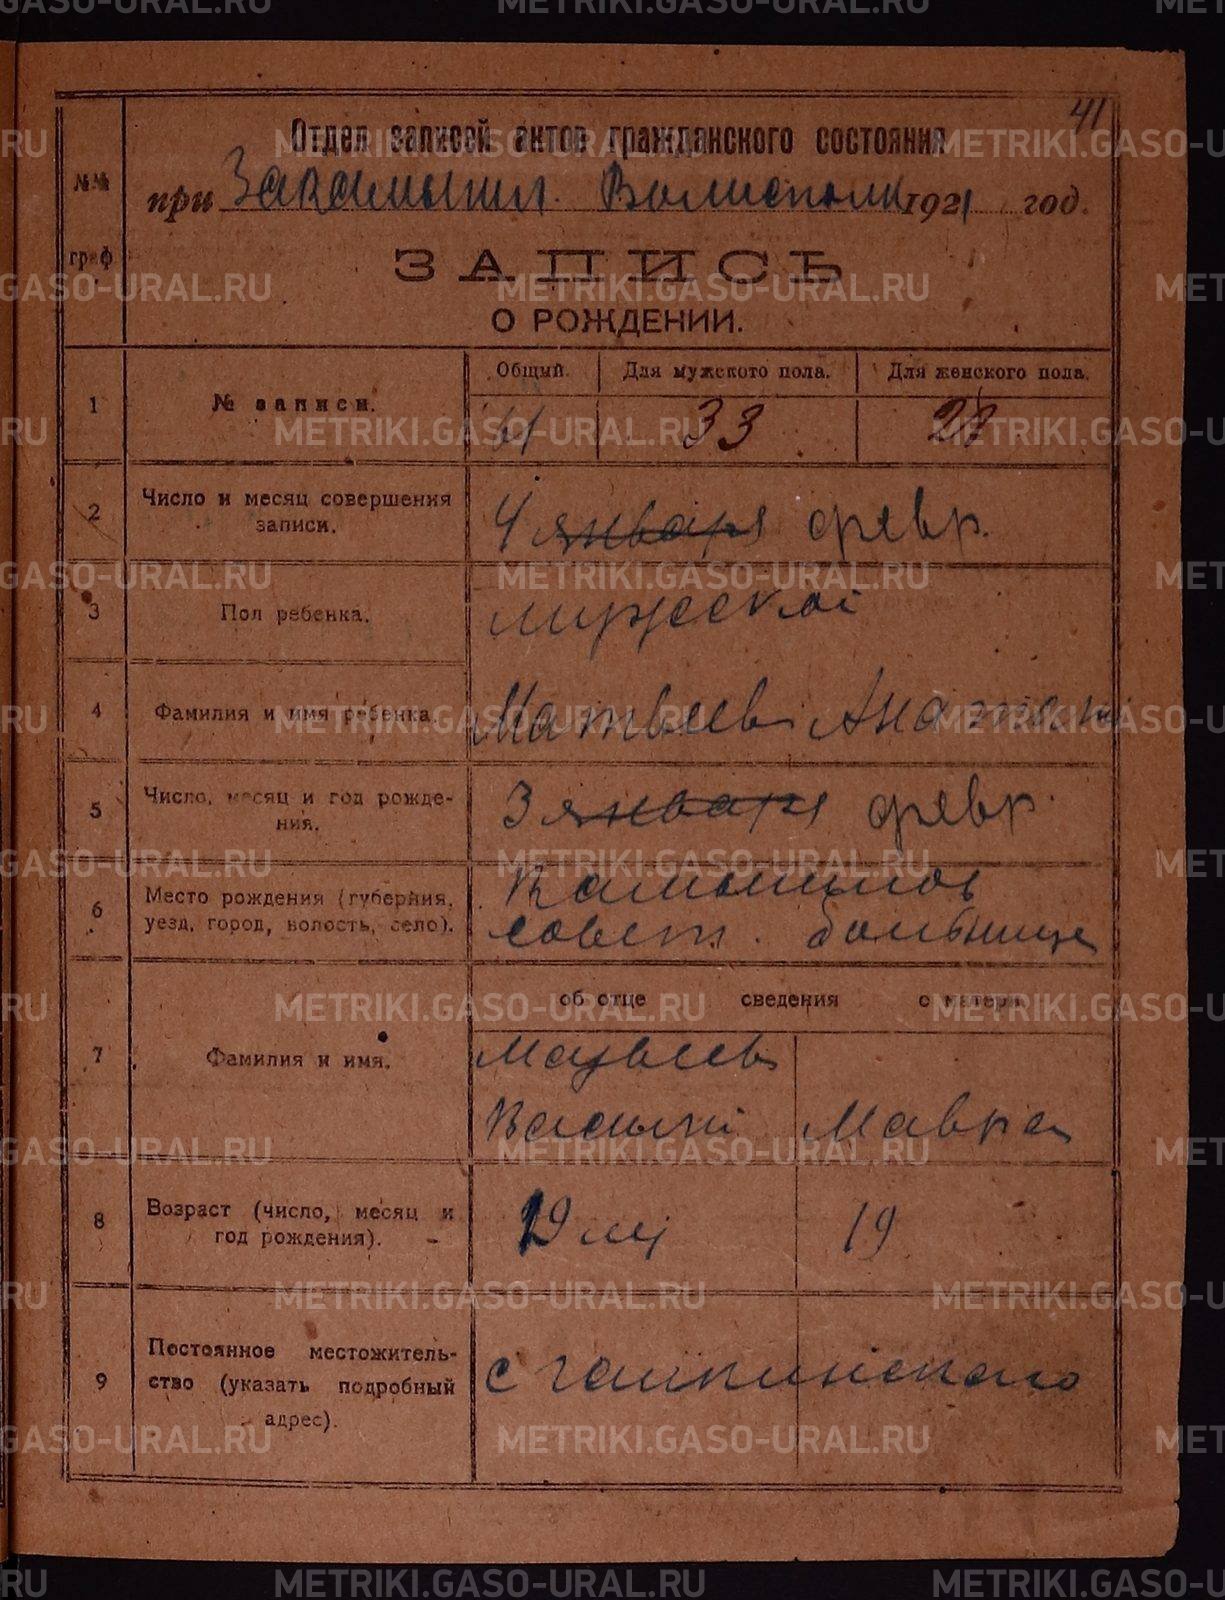 41
Отдел записей актов гражданского состояния
№№
граф
при Закамышл. Волисполк 1921 год.
ЗАПИСЬ
О РОЖДЕНИИ.
1 № записи. Общый. Для мужского пола. Для женского пола.
61 33
2 Число и месяц совершения записи. 4 января февр.
3 Пол ребенка. мужской
4 Фамилия и имя ребенка. Матвеев
5 Число, месяц и год рождения. 3 января февр.
6 Место рождения (губерния, уезд, город, волость, село). Камышлов
совет. больнице
об отце сведения о матери
7 Фамилия и имя. Матвеев
Василий Мавра
8 Возраст (число, месяц и год рождения). 19
9 Постоянное местожительство (указать подробный адрес). с Галкинского
METRIKI.GASO-URAL.RU